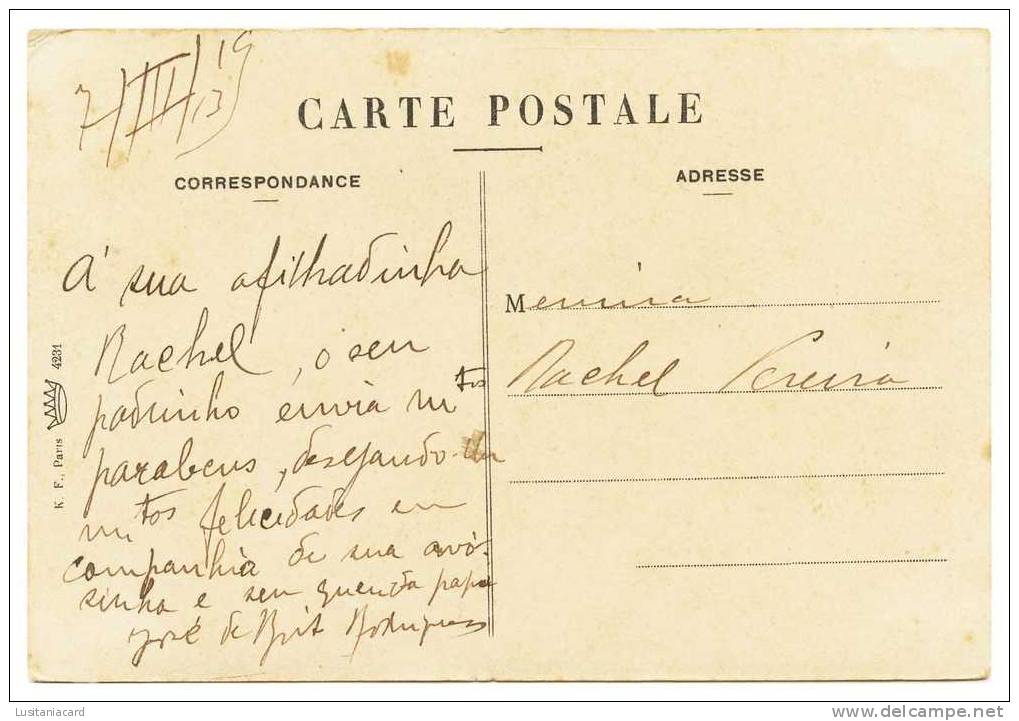 7/III/1913
CARTE POSTALE
CORRESPONDANCE
ADRESSE
A' sua afilhadinha
Rachel, o seu
padrinho envia mtos
parabens, desejando-lhe
mtos felicidades em
companhia de sua avó-
sinha e seu querido papá
José de Brit Rodrigues
Menina
Rachel Pereira
K. F., Paris 4231
Lustaniacard
www.delcampe.net